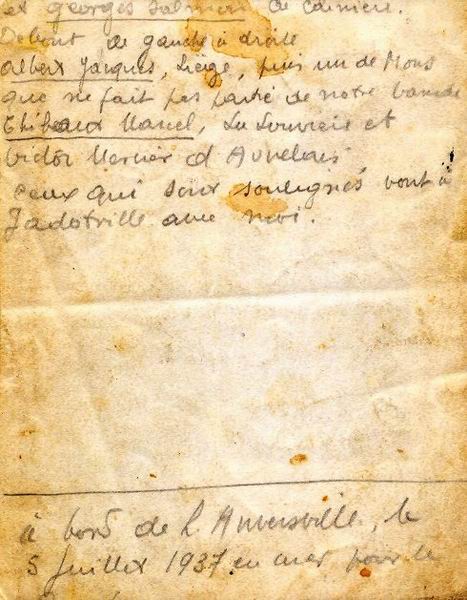 et georges Salmon de Carnières.
Debout de gauche à droite
Albert Jacques, Liège, puis un de Mons
que ne fait pas partie de notre bande
Thibeaux Marcel, La Louvière et
Victor Mercier d'Auvelais
ceux qui sont soulignés vont à
Jadotville avec moi.
à bord de l'Anversville, le
5 Juillet 1937 en mer pour le